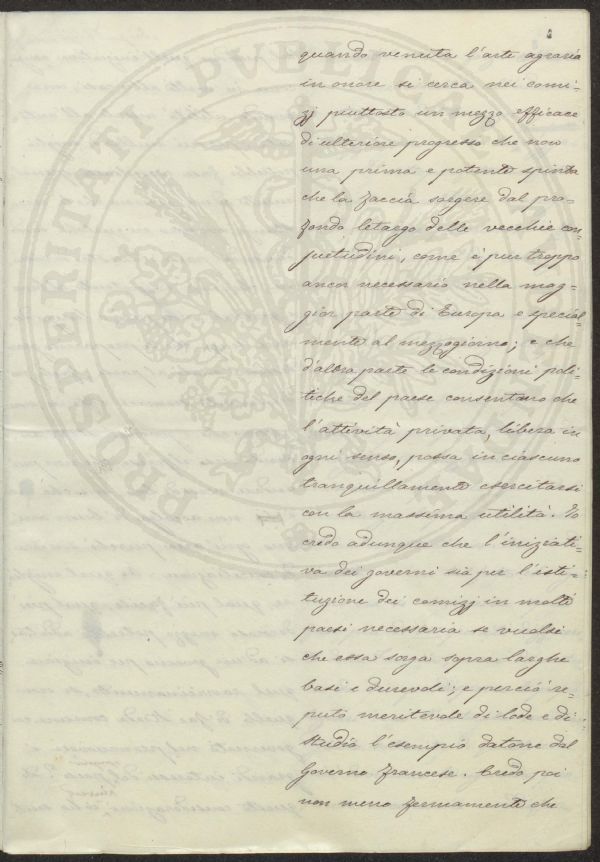 quando venuta l'arte agraria
in onore si cerca nei comi-
zj piuttosto un mezzo efficace
di ulteriore progresso che non
una prima e potente spinta
che la faccia sorgere dal pro-
fondo letargo delle vecchie con-
suetudini, come è pur troppo
ancor necessario nella mag-
gior parte di Europa e special-
mente al mezzogiorno; e che
d'altra parte le condizioni poli-
tiche del paese consentano che
l'attività privata, libera in
ogni senso, possa in ciascuno
tranquillamente esercitarsi
con la massima utilità. Io
credo adunque che l'iniziati-
va dei governi sia per l'isti-
tuzione dei comizj in molti
paesi necessaria se vuolsi
che essa sorga sopra larghe
basi e durevoli; e perciò re-
puto meritevole di lode e di
studio l'esempio datone dal
Governo francese. Credo poi
non meno fermamente che
PROSPERITATI PUBLICAE